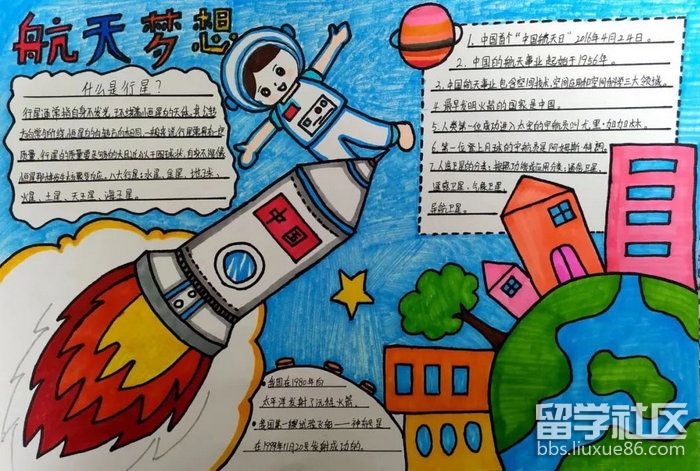 航天梦想
什么是行星?
行星通常指自身不发光,环绕着恒星的天体。其公转
方向常与所绕恒星的自转方向相同。一般来说行星需具有一定
质量,行星的质量要足够的大且近似于圆球状,自身不能像
恒星那样发生核聚变反应。八大行星:水星、金星、地球、
火星、土星、天王星、海王星。
1、中国首个"中国航天日"2016年4月24日。
2、中国的航天事业起始于1956年。
3、中国航天事业包含空间技术,空间应用和空间科学三大领域。
4、最早发明火箭的国家是中国。
5、人类第一位成功进入太空的宇航员叫尤里·加加林。
6、第一位登上月球的宇航员是阿姆斯特朗。
7、人造卫星的分类:按照功能或应用分类:通信卫星、
遥感卫星、气象卫星、
导航卫星。
中国
●我国在1980年向
太平洋发射了运载火箭。
●我国第一艘试验飞船——神舟号
在1999年11月20号发射成功的。
留学社区
bbs.liuxue86.com